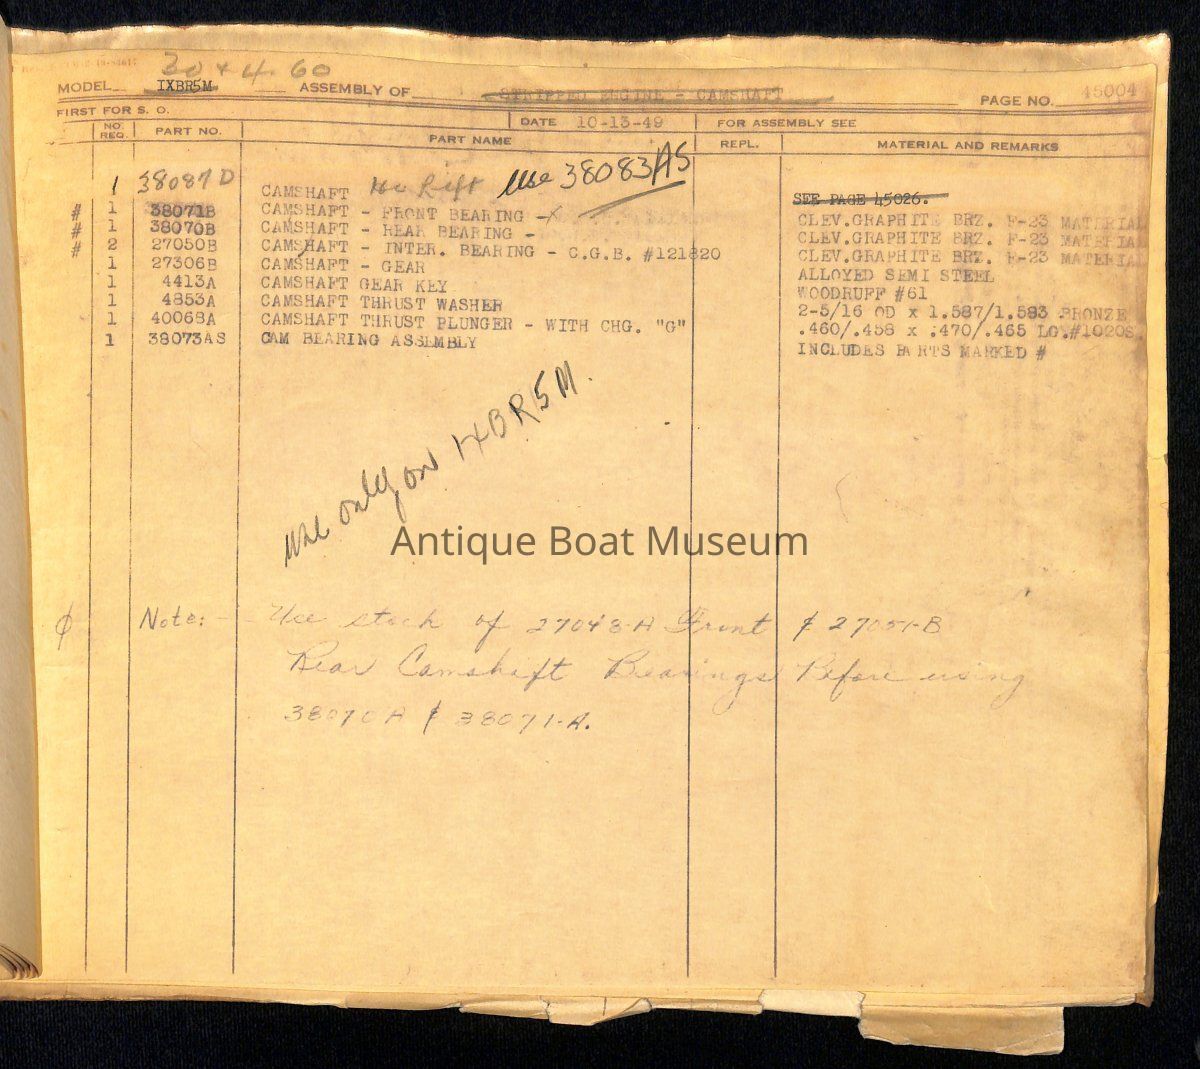 30 + 4.60
MODEL IXBR5M ASSEMBLY OF STRIPPED ENGINE - CAMSHAFT PAGE NO. 45004
FIRST FOR S. O. DATE 10-13-49 FOR ASSEMBLY SEE
NO. REQ. PART NO. PART NAME REPL. MATERIAL AND REMARKS
1 38087D CAMSHAFT Use 38083AS SEE PAGE 45026.
# 1 38071B CAMSHAFT - FRONT BEARING - CLEV.GRAPHITE BRZ. F-23 MATERIAL
# 1 38070B CAMSHAFT - REAR BEARING - CLEV.GRAPHITE BRZ. F-23 MATERIAL
# 2 27050B CAMSHAFT - INTER. BEARING - C.G.B. #121820 CLEV.GRAPHITE BRZ. F-23 MATERIAL
1 27306B CAMSHAFT - GEAR ALLOYED SEMI STEEL
1 4413A CAMSHAFT GEAR KEY WOODRUFF #61
1 4853A CAMSHAFT THRUST WASHER 2-5/16 OD x 1.587/1.583 BRONZE
1 40068A CAMSHAFT THRUST PLUNGER - WITH CHG. "G" .460/.458 x .470/.465 LG.#1020S
1 38073AS CAM BEARING ASSEMBLY INCLUDES PARTS MARKED #
Use only on IXBR5M.
Antique Boat Museum
Note: - Use stock of 27048-A Front & 27051-B
Rear Camshaft Bearings Before using
38070A & 38071-A.